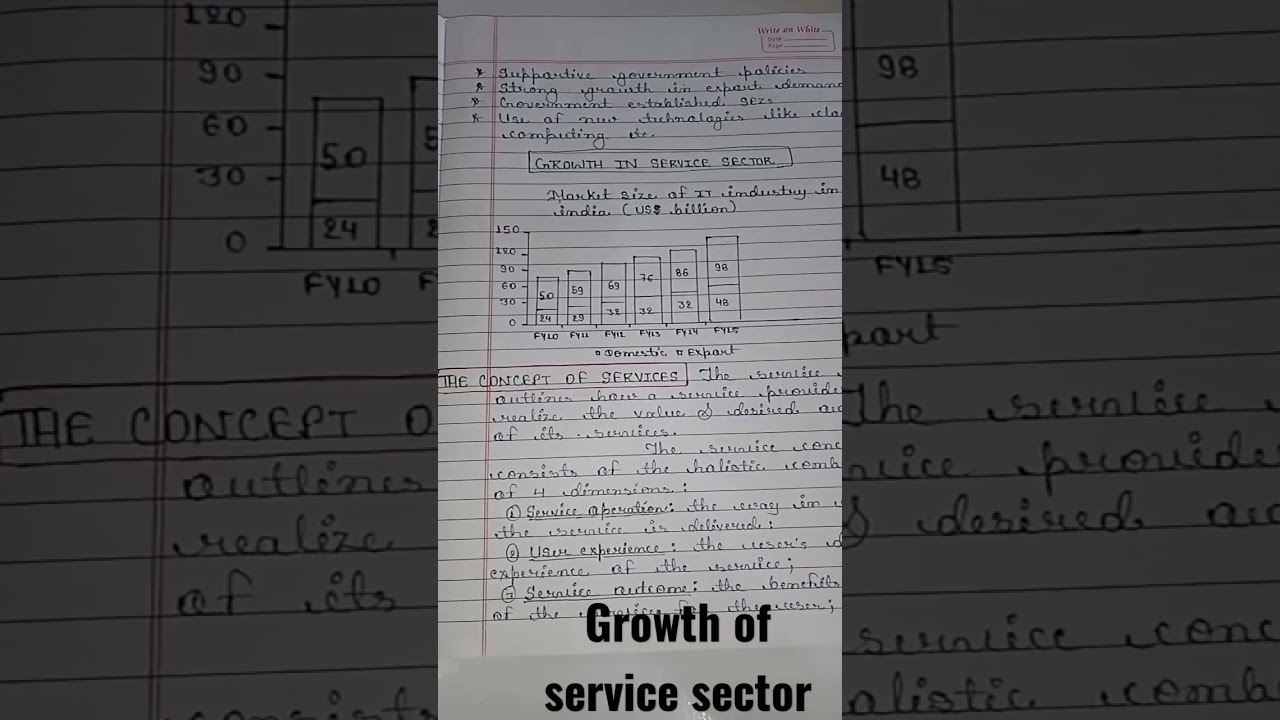 Write on White
Date
Page
* Supportive government policies
* Strong growth in export demand
* Government established SEZs
* Use of new technologies like clo
computing etc.
GROWTH IN SERVICE SECTOR
Market size of IT industry in
india (US$ billion)
150
120
90
60
30
0
50 59 69 76 86 98
24 29 32 32 32 48
FY10 FY11 FY12 FY13 FY14 FY15
Domestic Export
THE CONCEPT OF SERVICES The service
outlines how a service provide
realize the value & desired
of its services.
The service conc
consists of the holistic comb
of 4 dimensions:
① Service operation: the way in
the service is delivered:
② User experience: the user's d
experience of the service;
③ Service outcome: the benefits
of the service for the user;
Growth of
service sector
120
90
60
30
0
50
24
FY10
THE CONCEPT O
outlines
realize
of its
98
48
FY15
port
The service
vice provide
& desired
service conc
olistic comb